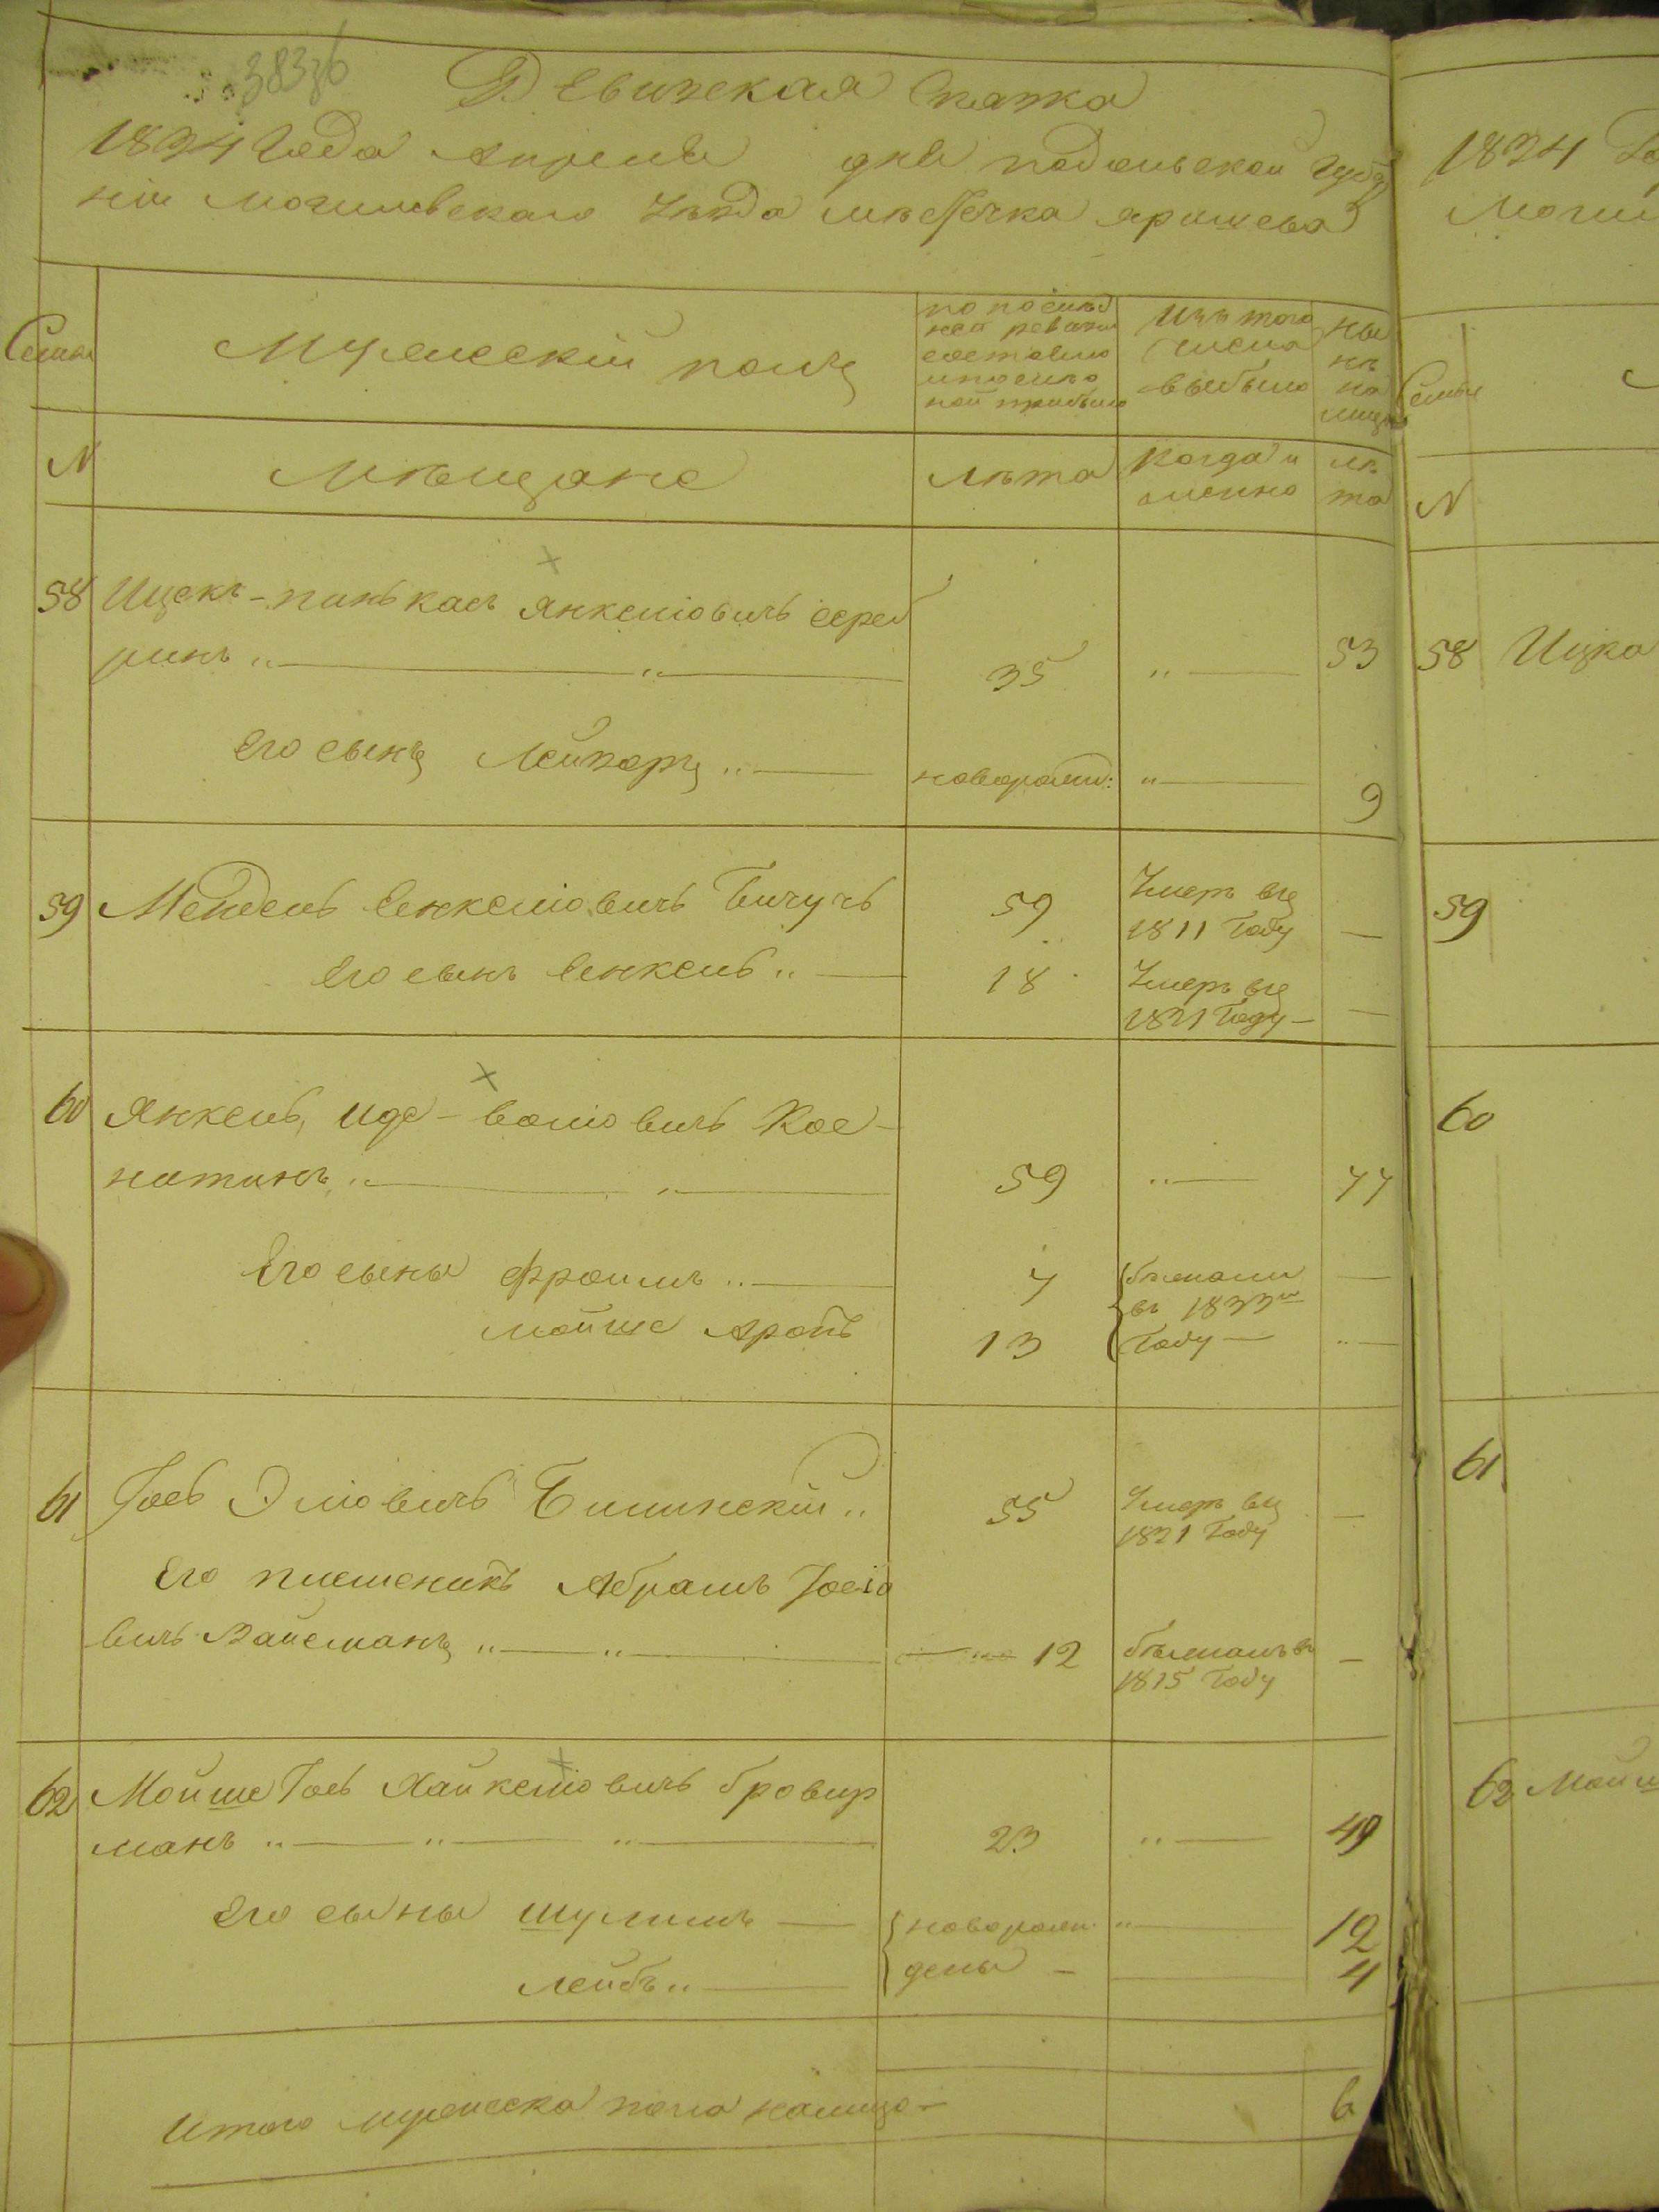 383зб
Ревизская Сказка
1834 Года Апреля дня подольской губер
ніи могилевскаго Уѣзда мѣстечка яришева
Семьи
Мужескій полъ
по послѣд
ней ревизіи
состояло
и послѣ о
ной прибыло
Изъ того
числа
выбыло
ны
нѣ
на
лицо
N
Мѣщане
Лѣта
когда и
именно
лѣ
та
58 Ицекъ-пинькасъ Янкеліовичъ
ринъ 35 53
Его сынъ новорожд: 9
59 Мендель Енкеліовичъ Бичучъ 59 Умеръ въ
1811 Году
Его сынъ Енкель 18 Умеръ въ
1821 Году
60 Янкель, Иде-воліовичъ Кос-
натинъ 59 77
Его сыны Фроимъ 7 бѣжали
въ 1833м
мойше Аронъ 13 Году
61 Іось Эліовичъ Билинскій 55 Умеръ въ
1821 Году
Его племеникъ Абрамъ Іосіо
вичъ Вайсманъ 12 бѣжалъ въ
1815 Году
62 Мойше Іось Хайкеліовичъ бровер
манъ 23 41
Его сыны шулимъ новорож 12
лейбъ дены 4
Итого мужеска пола налицо 6
1834 Го
Могил
Семьи
N
58 Ицка
59
60
61
62 Мойш